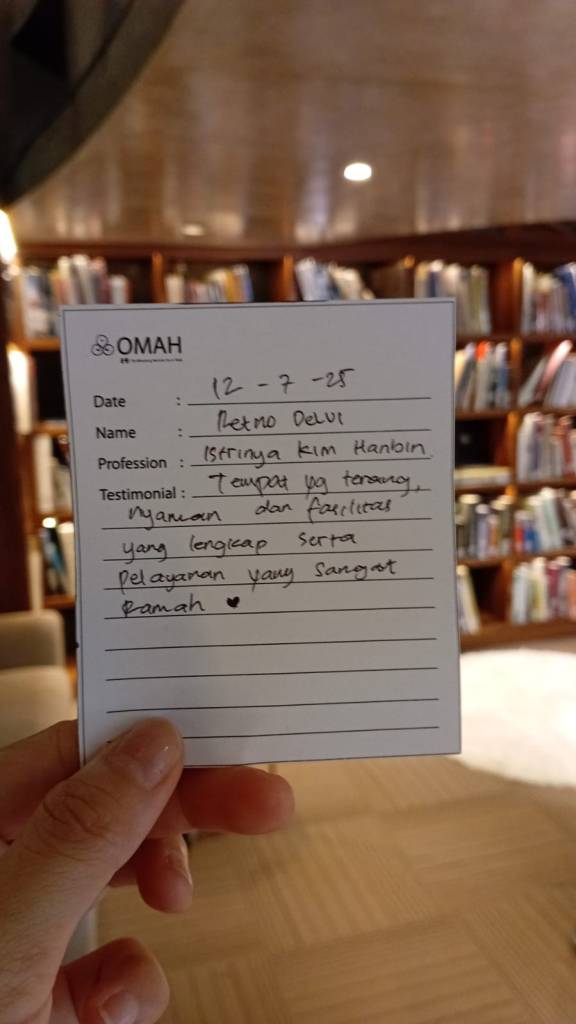 OMAH
Date : 12 - 7 - 25
Name : Retno Delvi
Profession : Istrinya Kim Hanbin.
Testimonial : Tempat yg tenang,
nyaman dan fasilitas
yang lengkap serta
pelayanan yang sangat
Ramah ♥